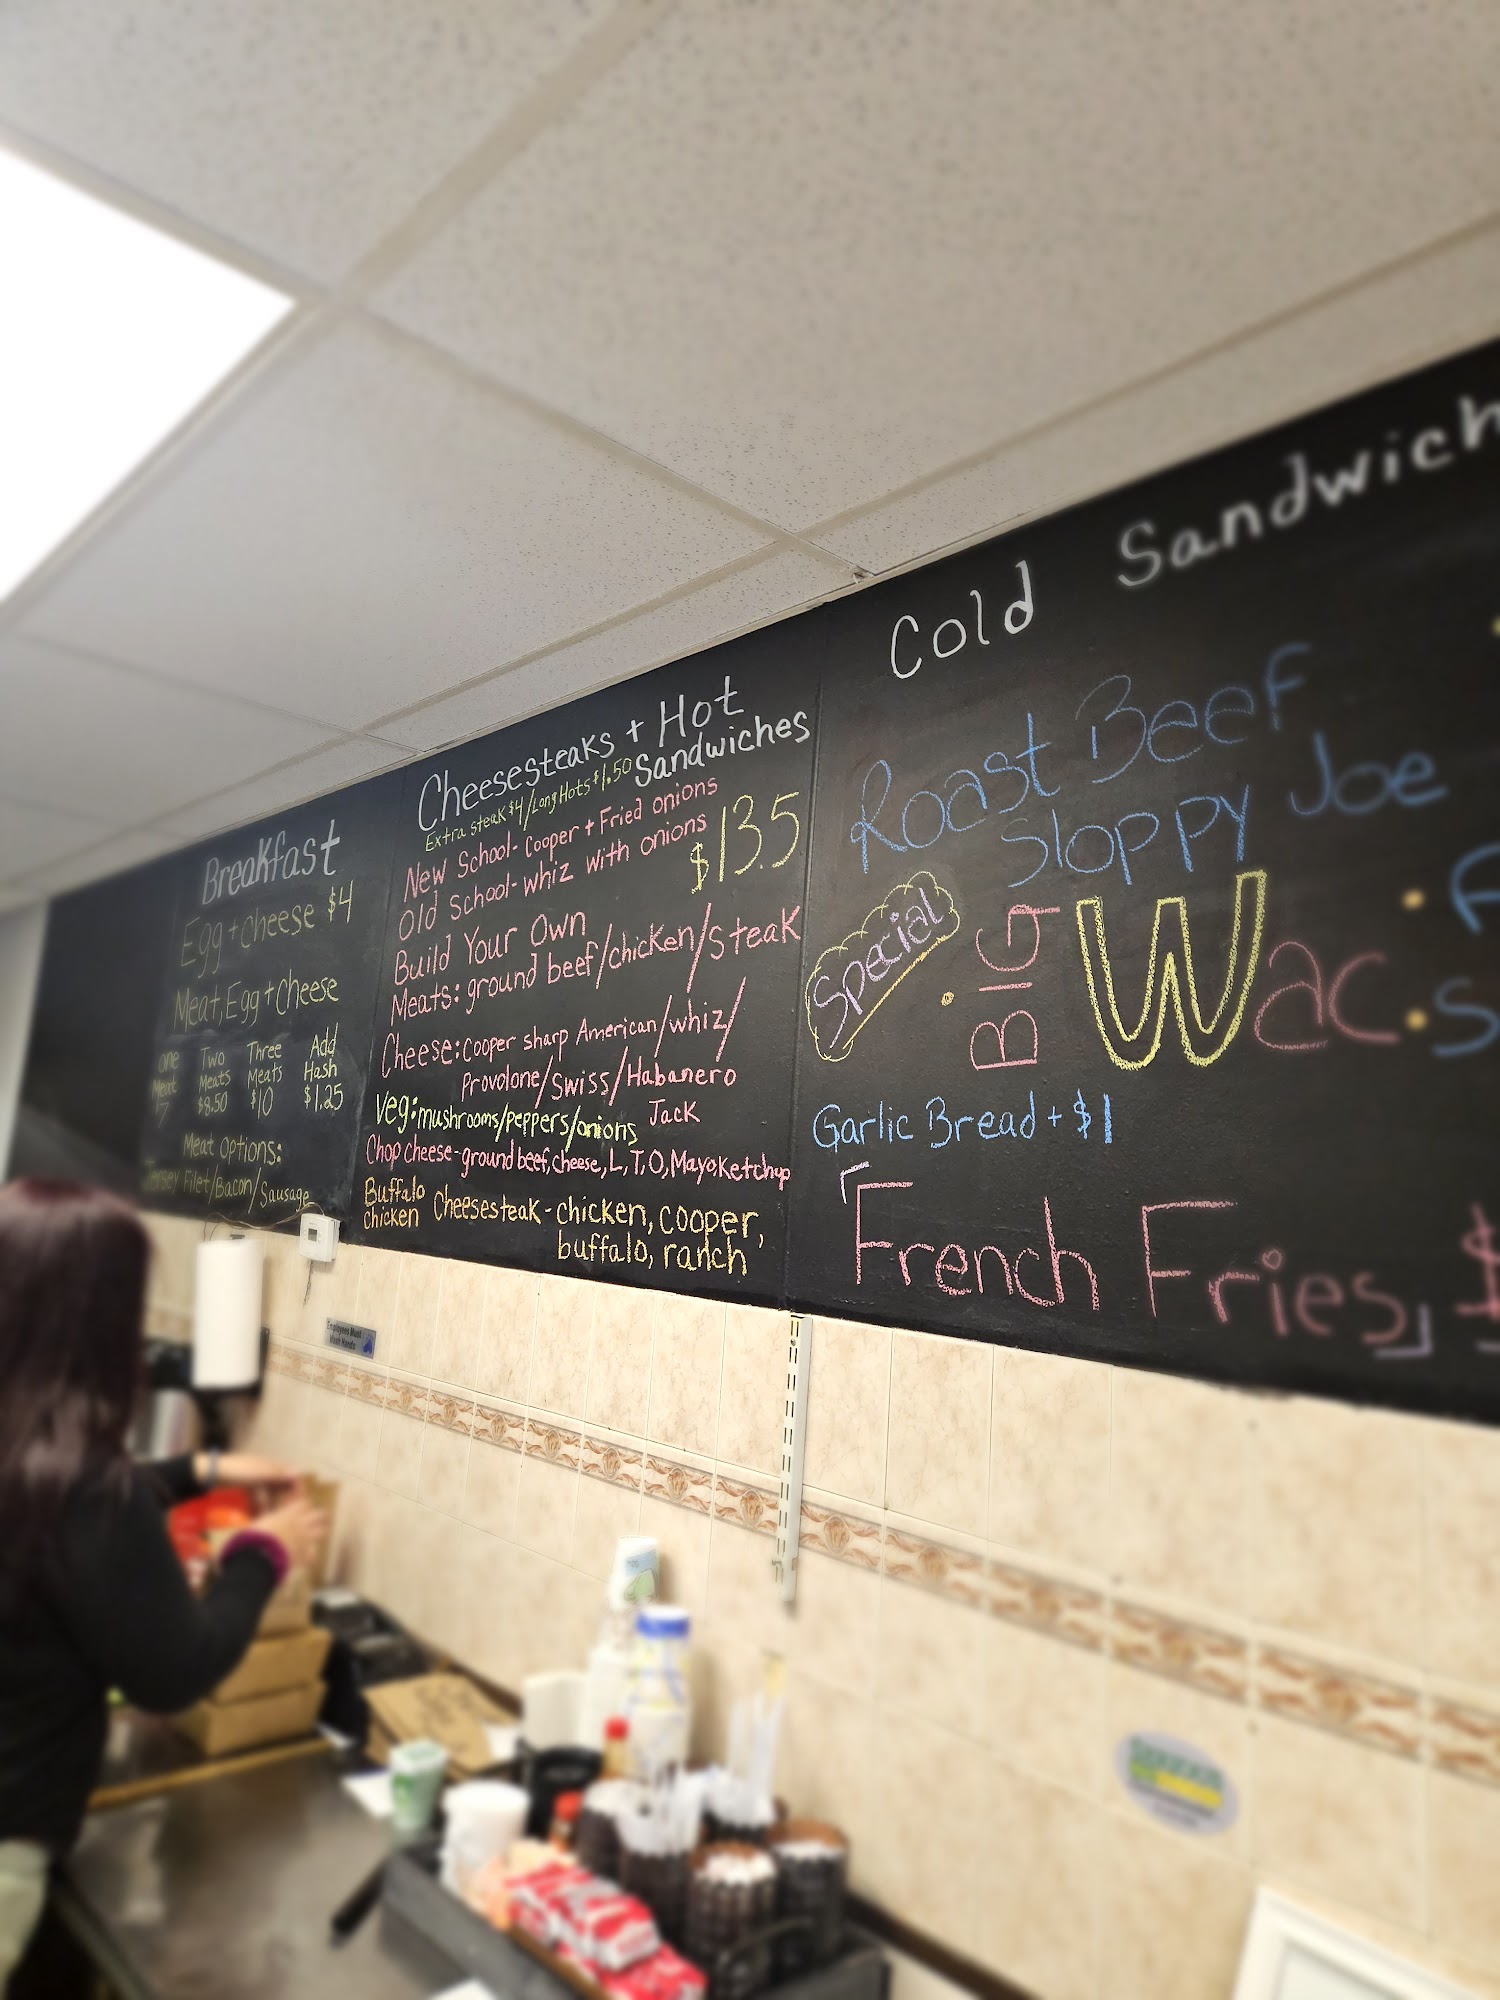 Breakfast
Egg + Cheese $4
Meat, Egg + Cheese
One Meat 7
Two Meats $8.50
Three Meats $10
Add Hash $1.25
Meat Options:
Jersey Filet/Bacon/Sausage
Cheesesteaks + Hot
Sandwiches
Extra steak $4/Long Hots $1.50
New School- Cooper + Fried onions
Old School- whiz with onions
$13.5
Build Your Own
Meats: ground beef/chicken/steak
Cheese: Cooper sharp American/whiz/
Provolone/Swiss/Habanero
Jack
Veg: mushrooms/peppers/onions
Chop cheese- ground beef, cheese, L, T, O, Mayo, Ketchup
Buffalo
chicken Cheesesteak - chicken, cooper,
buffalo, ranch
Cold Sandwich
Roast Beef
Sloppy Joe
Special
BIG Wac
Garlic Bread + $1
French Fries $
Employees Must
Wash Hands